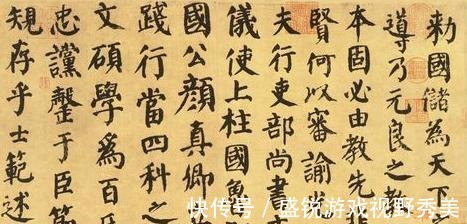 勅國儲為天下
導乃元良之教
本固必由教先
賢何以審諭
夫行吏部尚書
儀使上柱國魯
國公顏真卿
踐行當四科之
文碩學為百氏
忠讜罄于臣節
規存乎士範述
快传号/盛锐游戏视野秀美